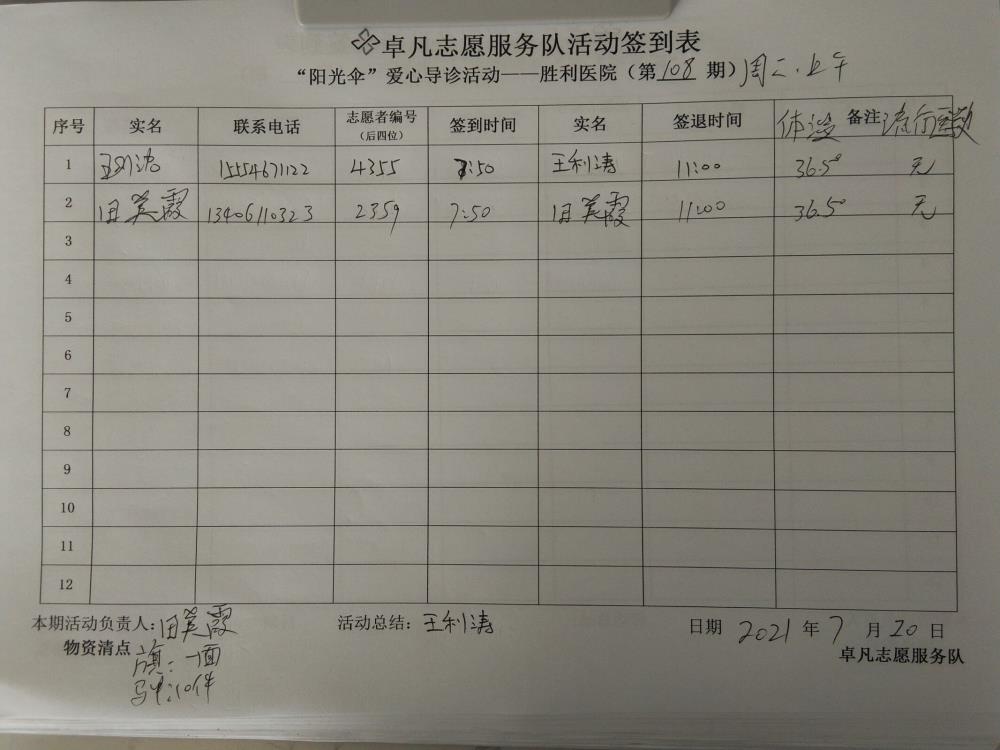 卓凡志愿服务队活动签到表
“阳光伞”爱心导诊活动——胜利医院（第108期）周二.上午
序号 实名 联系电话 志愿者编号（后四位） 签到时间 实名 签退时间 体温 备注 流行
1 王利涛 15554671122 4355 7:50 王利涛 11:00 36.5° 无
2 田英霞 13406110323 2359 7:50 田英霞 11:00 36.5° 无
3
4
5
6
7
8
9
10
11
12
本期活动负责人：田英霞 活动总结：王利涛 日期 2021年7月20日
物资清点 旗：一面 卓凡志愿服务队
马甲：10件